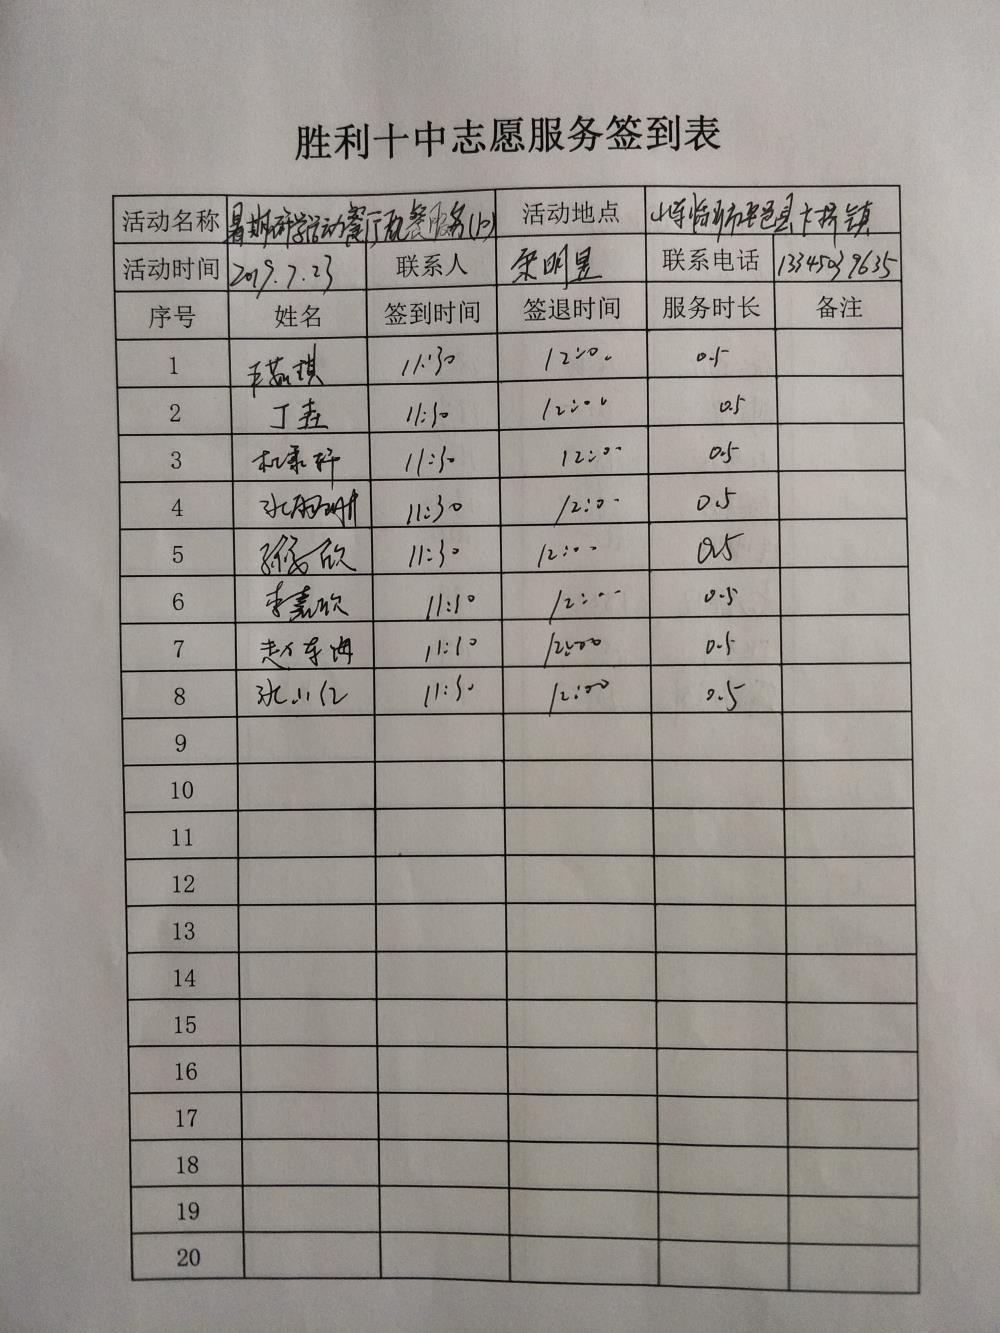 胜利十中志愿服务签到表
活动名称 暑期研学活动餐厅配餐服务(1) 活动地点 山东临沂市平邑县卞桥镇
活动时间 2019.7.23 联系人 荣明昱 联系电话 13345039635
序号 姓名 签到时间 签退时间 服务时长 备注
1 王茹琪 11:30 12:00 0.5
2 丁垚 11:30 12:00 0.5
3 11:30 12:00 0.5
4 11:30 12:00 0.5
5 11:30 12:00 0.5
6 李嘉欣 11:30 12:00 0.5
7 11:30 12:00 0.5
8 11:30 12:00 0.5
9
10
11
12
13
14
15
16
17
18
19
20